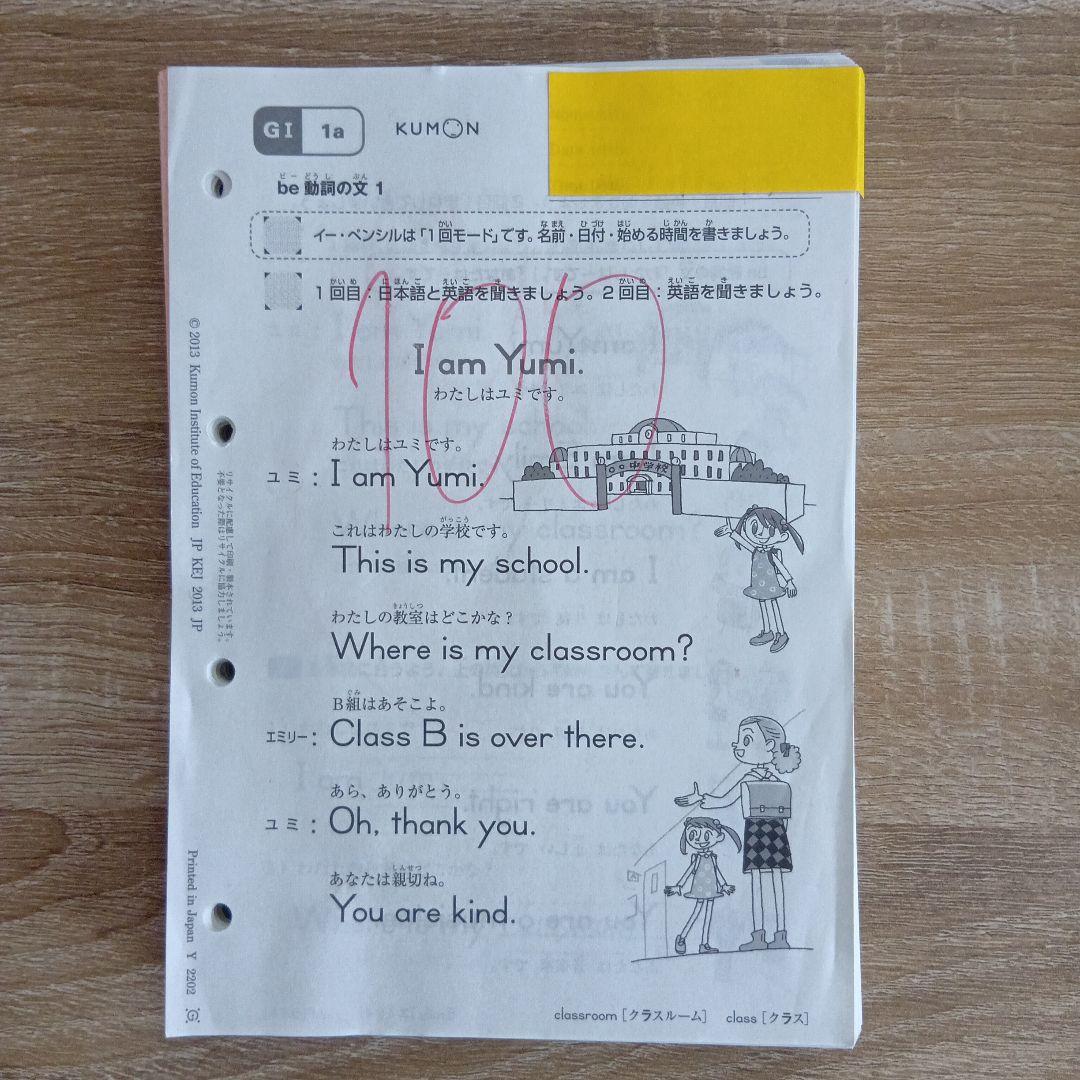 GI 1a KUMON
be動詞の文 1
イー・ペンシルは「1回モード」です。名前・日付・始める時間を書きましょう。
1回目：日本語と英語を聞きましょう。2回目：英語を聞きましょう。
100
I am Yumi.
わたしはユミです。
中学校
わたしはユミです。
ユミ： I am Yumi.
これはわたしの学校です。
This is my school.
わたしの教室はどこかな？
Where is my classroom?
B組はあそこよ。
エミリー： Class B is over there.
あら、ありがとう。
ユミ： Oh, thank you.
あなたは親切ね。
You are kind.
classroom［クラスルーム］ class［クラス］
© 2013 Kumon Institute of Education JP KEJ 2013 JP
リサイクルに配慮して印刷・製本されています。
不要となった際はリサイクルに協力しましょう。
Printed in Japan Y 2202 G